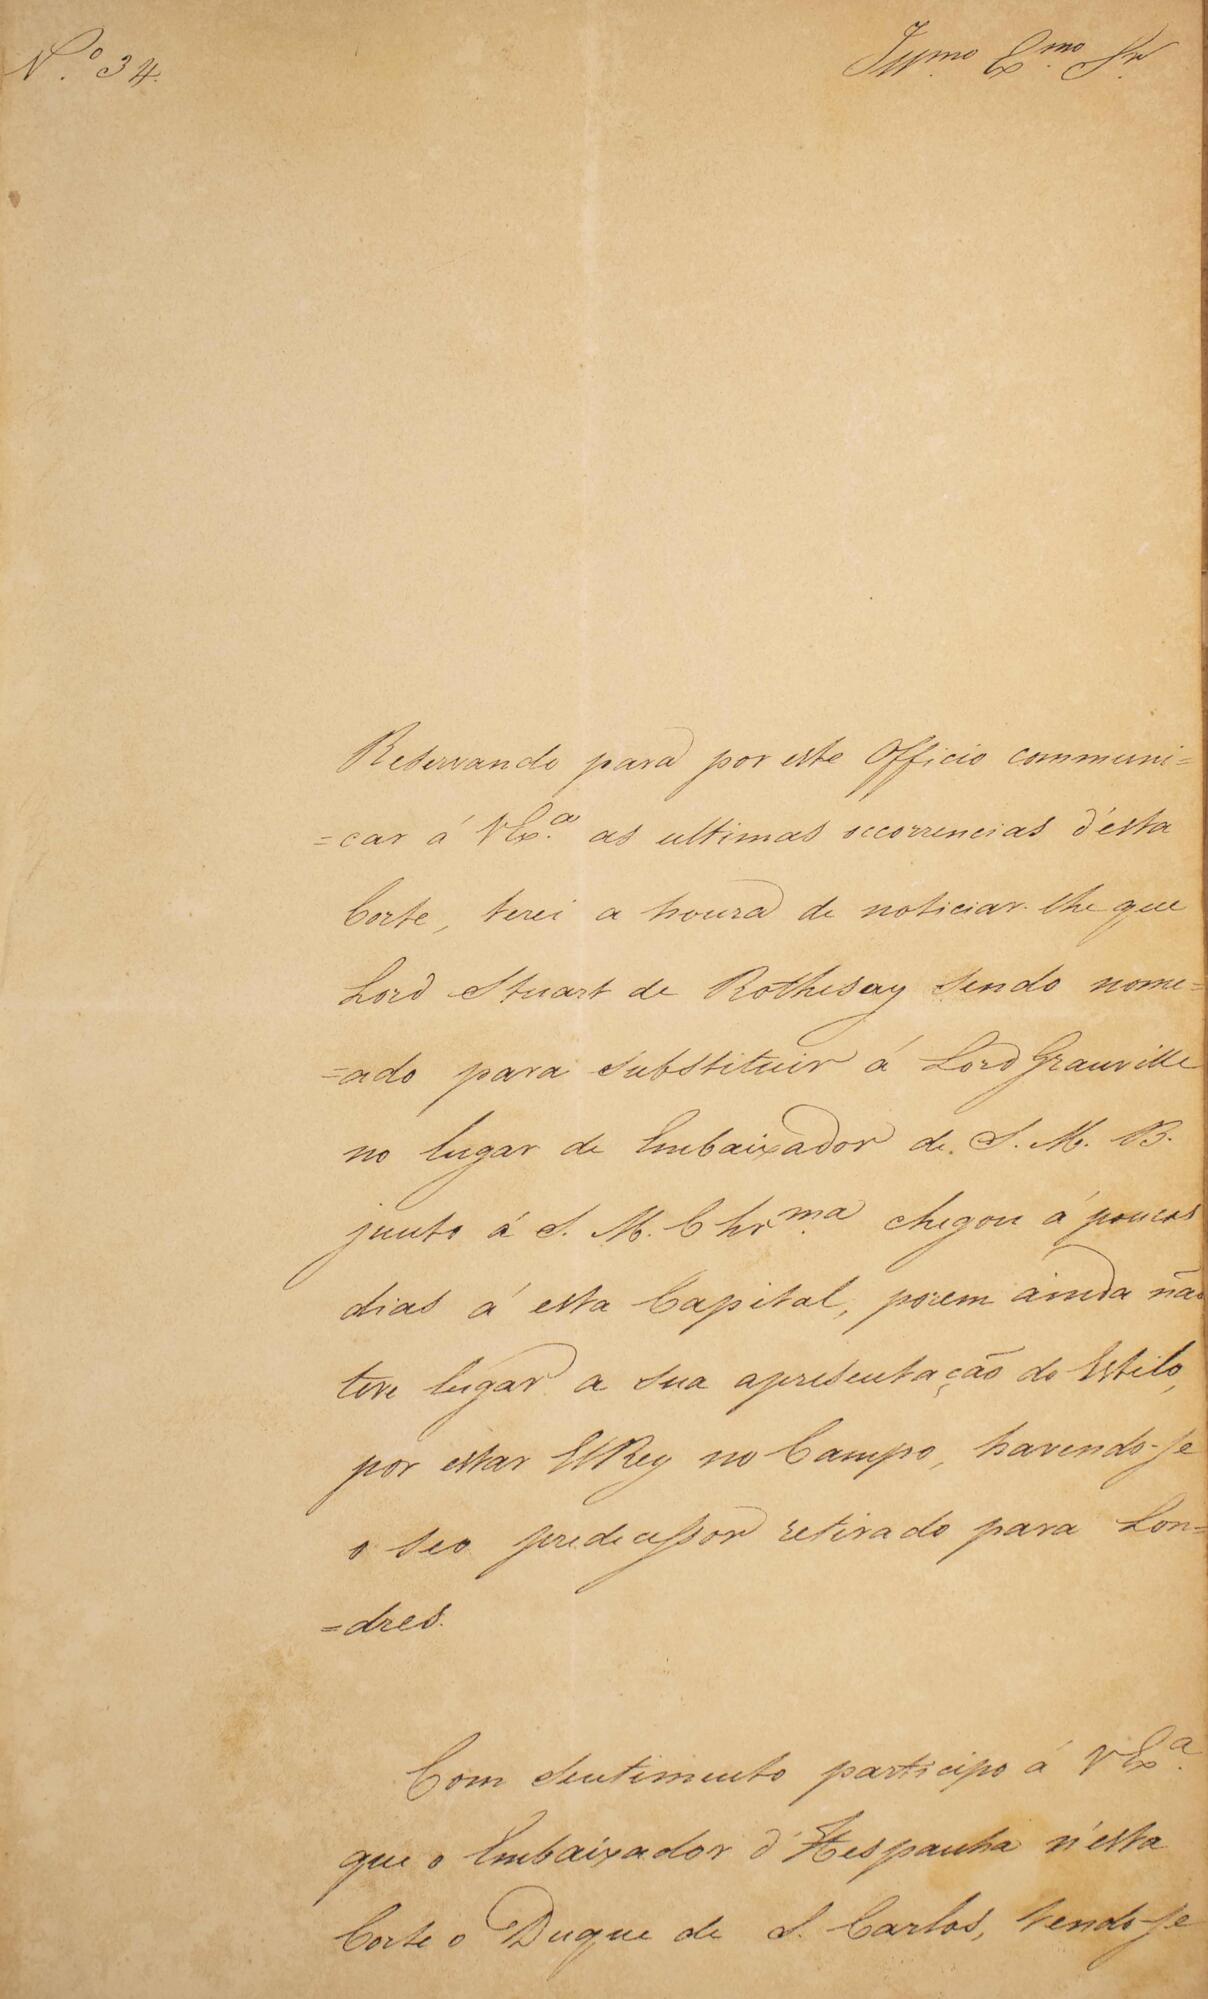 N.º 34.
Illmo. Exmo. Snr.
Reservando para por este Officio communi=
=car á VExª. as ultimas occorrencias d'esta
Corte, terei a honra de noticiar-lhe que
Lord Stuart de Rothesay sendo nome=
=ado para substituir á Lord Granville
no lugar de Embaixador de S. M. B.
junto á S. M. Chrma. chegou á poucos
dias á esta Capital, porem ainda não
teve lugar a sua apresentação do Estilo,
por estar ElRey no Campo, havendo-se
o seo predecessor retirado para Lon=
=dres.
Com sentimento participo á VExª.
que o Embaixador d'Hespanha n'esta
Corte o Duque de S. Carlos, tendo-se